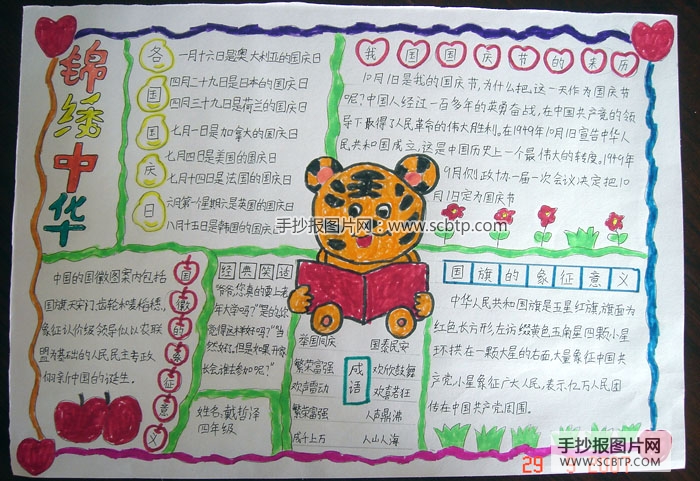 锦绣中华
各国国庆日
一月十六日是奥大利亚的国庆日
四月二十九日是日本的国庆日
四月三十九日是荷兰的国庆日
七月一日是加拿大的国庆日
七月四日是美国的国庆日
七月十四日是法国的国庆日
六月第一星期六是英国的国庆日
八月十五日是韩国的国庆日
我国国庆节的来历
10月1日是我的国庆节,为什么把,这一天作为国庆节
呢?中国人经过一百多年的英勇奋战,在中国共产党的领
导下取得了人民革命的伟大胜利。在1949年10月1日宣告中华人
民共和国成立,这是中国历史上一个最伟大的转度,1949年
9月侧,政协一届一次会议决定把10
月1日定为国庆节
手抄报图片网:www.scbtp.com
中国的国徽图案内包括
国旗天安门,齿轮和麦稻穗,
象征认价级领导似以农联
盟为基础的人民民主专政
和新中国的诞生。
国徽的象征意义
经典笑话
"爷爷,您真的要上老
年大学吗?""是的,你
觉得这样好吗?""当
然好。但是如果开家
长会谁去参加呢?"
姓名:戴哲泽
四年级
成语
举国同庆 国泰民安
繁荣富强 欢欣鼓舞
欢声雷动 欢喜若狂
繁荣富强 人声鼎沸
成千上万 人山人海
国旗的象征意义
中华人民共和国旗是五星红旗,旗面为
红色,长方形,左访缀黄色五角星四颗小星
环拱在一颗大星的右面,大量象征中国共
产党,小星象征广大人民,表示亿万人民团
传在中国共产党周围。
手抄报图片网
WWW.SCBTP.COM